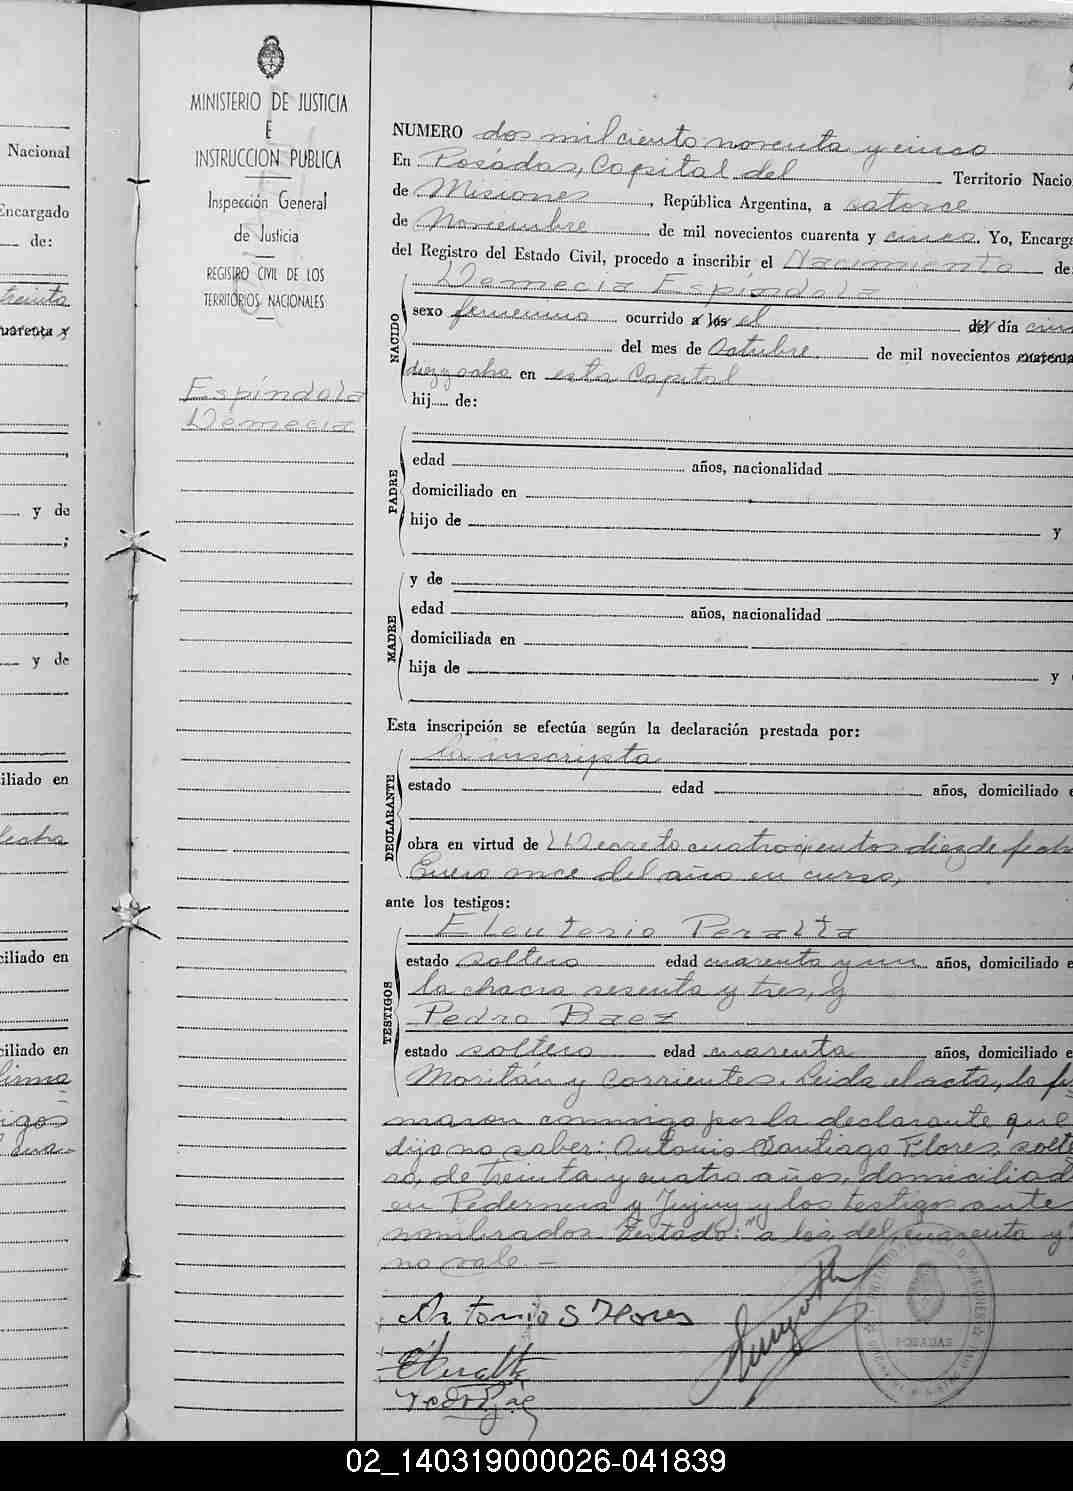 Nacional
Encargado
de:
treinta
cuarenta y
y de
;
y de
iliado en
fecha
ciliado en
ciliado en
firma
MINISTERIO DE JUSTICIA
E
INSTRUCCION PUBLICA
Inspección General
de Justicia
REGISTRO CIVIL DE LOS
TERRITORIOS NACIONALES
Espíndola
Demecia
NUMERO dos mil ciento noventa y cinco
En Posadas, Capital del Territorio Nacio
de Misiones, República Argentina, a catorce
de Noviembre de mil novecientos cuarenta y cinco. Yo, Encarga
del Registro del Estado Civil, procedo a inscribir el Nacimiento de:
NACIDO
Demecia Espíndola
sexo femenino ocurrido a los el del día cinco
del mes de Octubre de mil novecientos cuarenta
diez y ocho en esta Capital
hij de:
PADRE
edad años, nacionalidad
domiciliado en
hijo de y
MADRE
y de
edad años, nacionalidad
domiciliada en
hija de y
Esta inscripción se efectúa según la declaración prestada por:
DECLARANTE
la inscripta
estado edad años, domiciliado e
obra en virtud de Decreto cuatrocientos diez de fecha
Enero once del año en curso,
ante los testigos:
TESTIGOS
Eleuterio Peralta
estado soltero edad cuarenta y un años, domiciliado e
la chacra sesenta y tres, y
Pedro Baez
estado soltero edad cuarenta años, domiciliado e
Moritán y Corrientes. Leida el acta, la fir
maron conmigo por la declarante que
dijo no saber: Antonio Santiago Flores, solte
ro, de treinta y cuatro años, domiciliad
en Pedernera y Jujuy y los testigos ante
nombrados. Testado: "a los, del, cuarenta y
no vale. —
Antonio S Flores
POSADAS
02_140319000026-041839